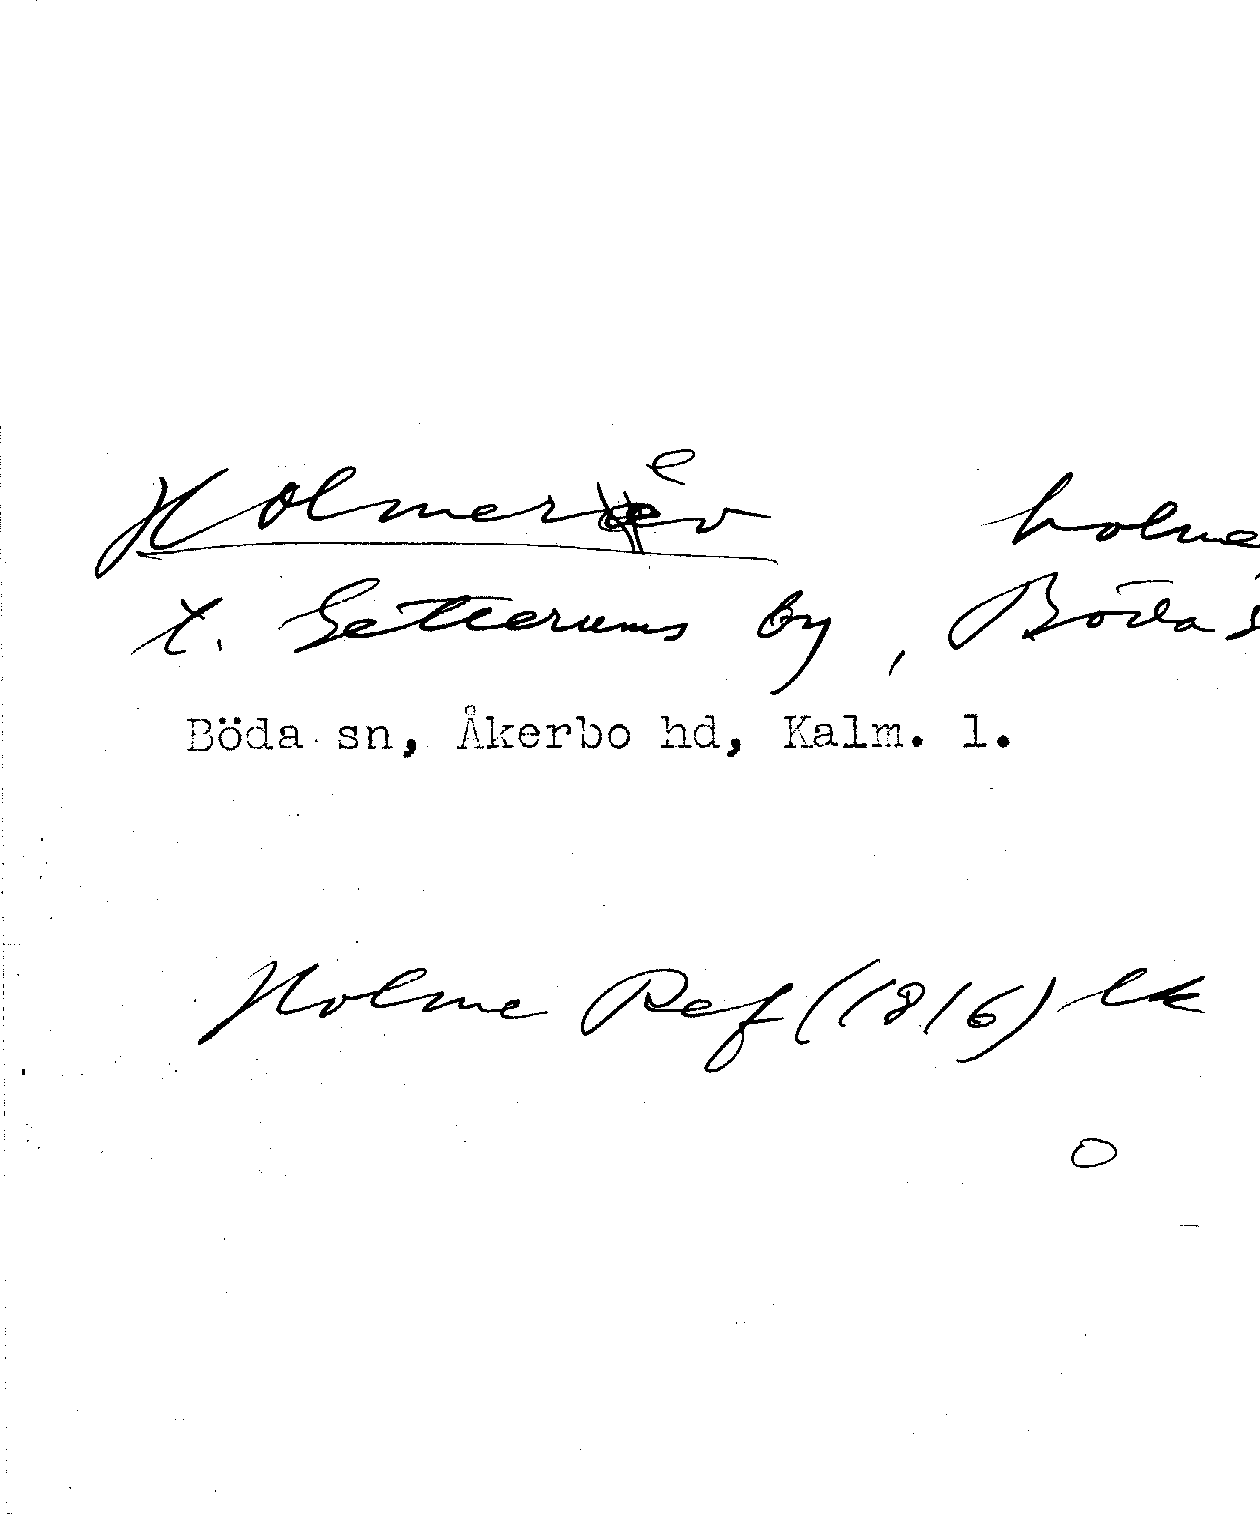 Holmerev holme
t. Getterums by, Böda s
Böda sn, Åkerbo hd, Kalm. l.
Holme Ref (1816) lk